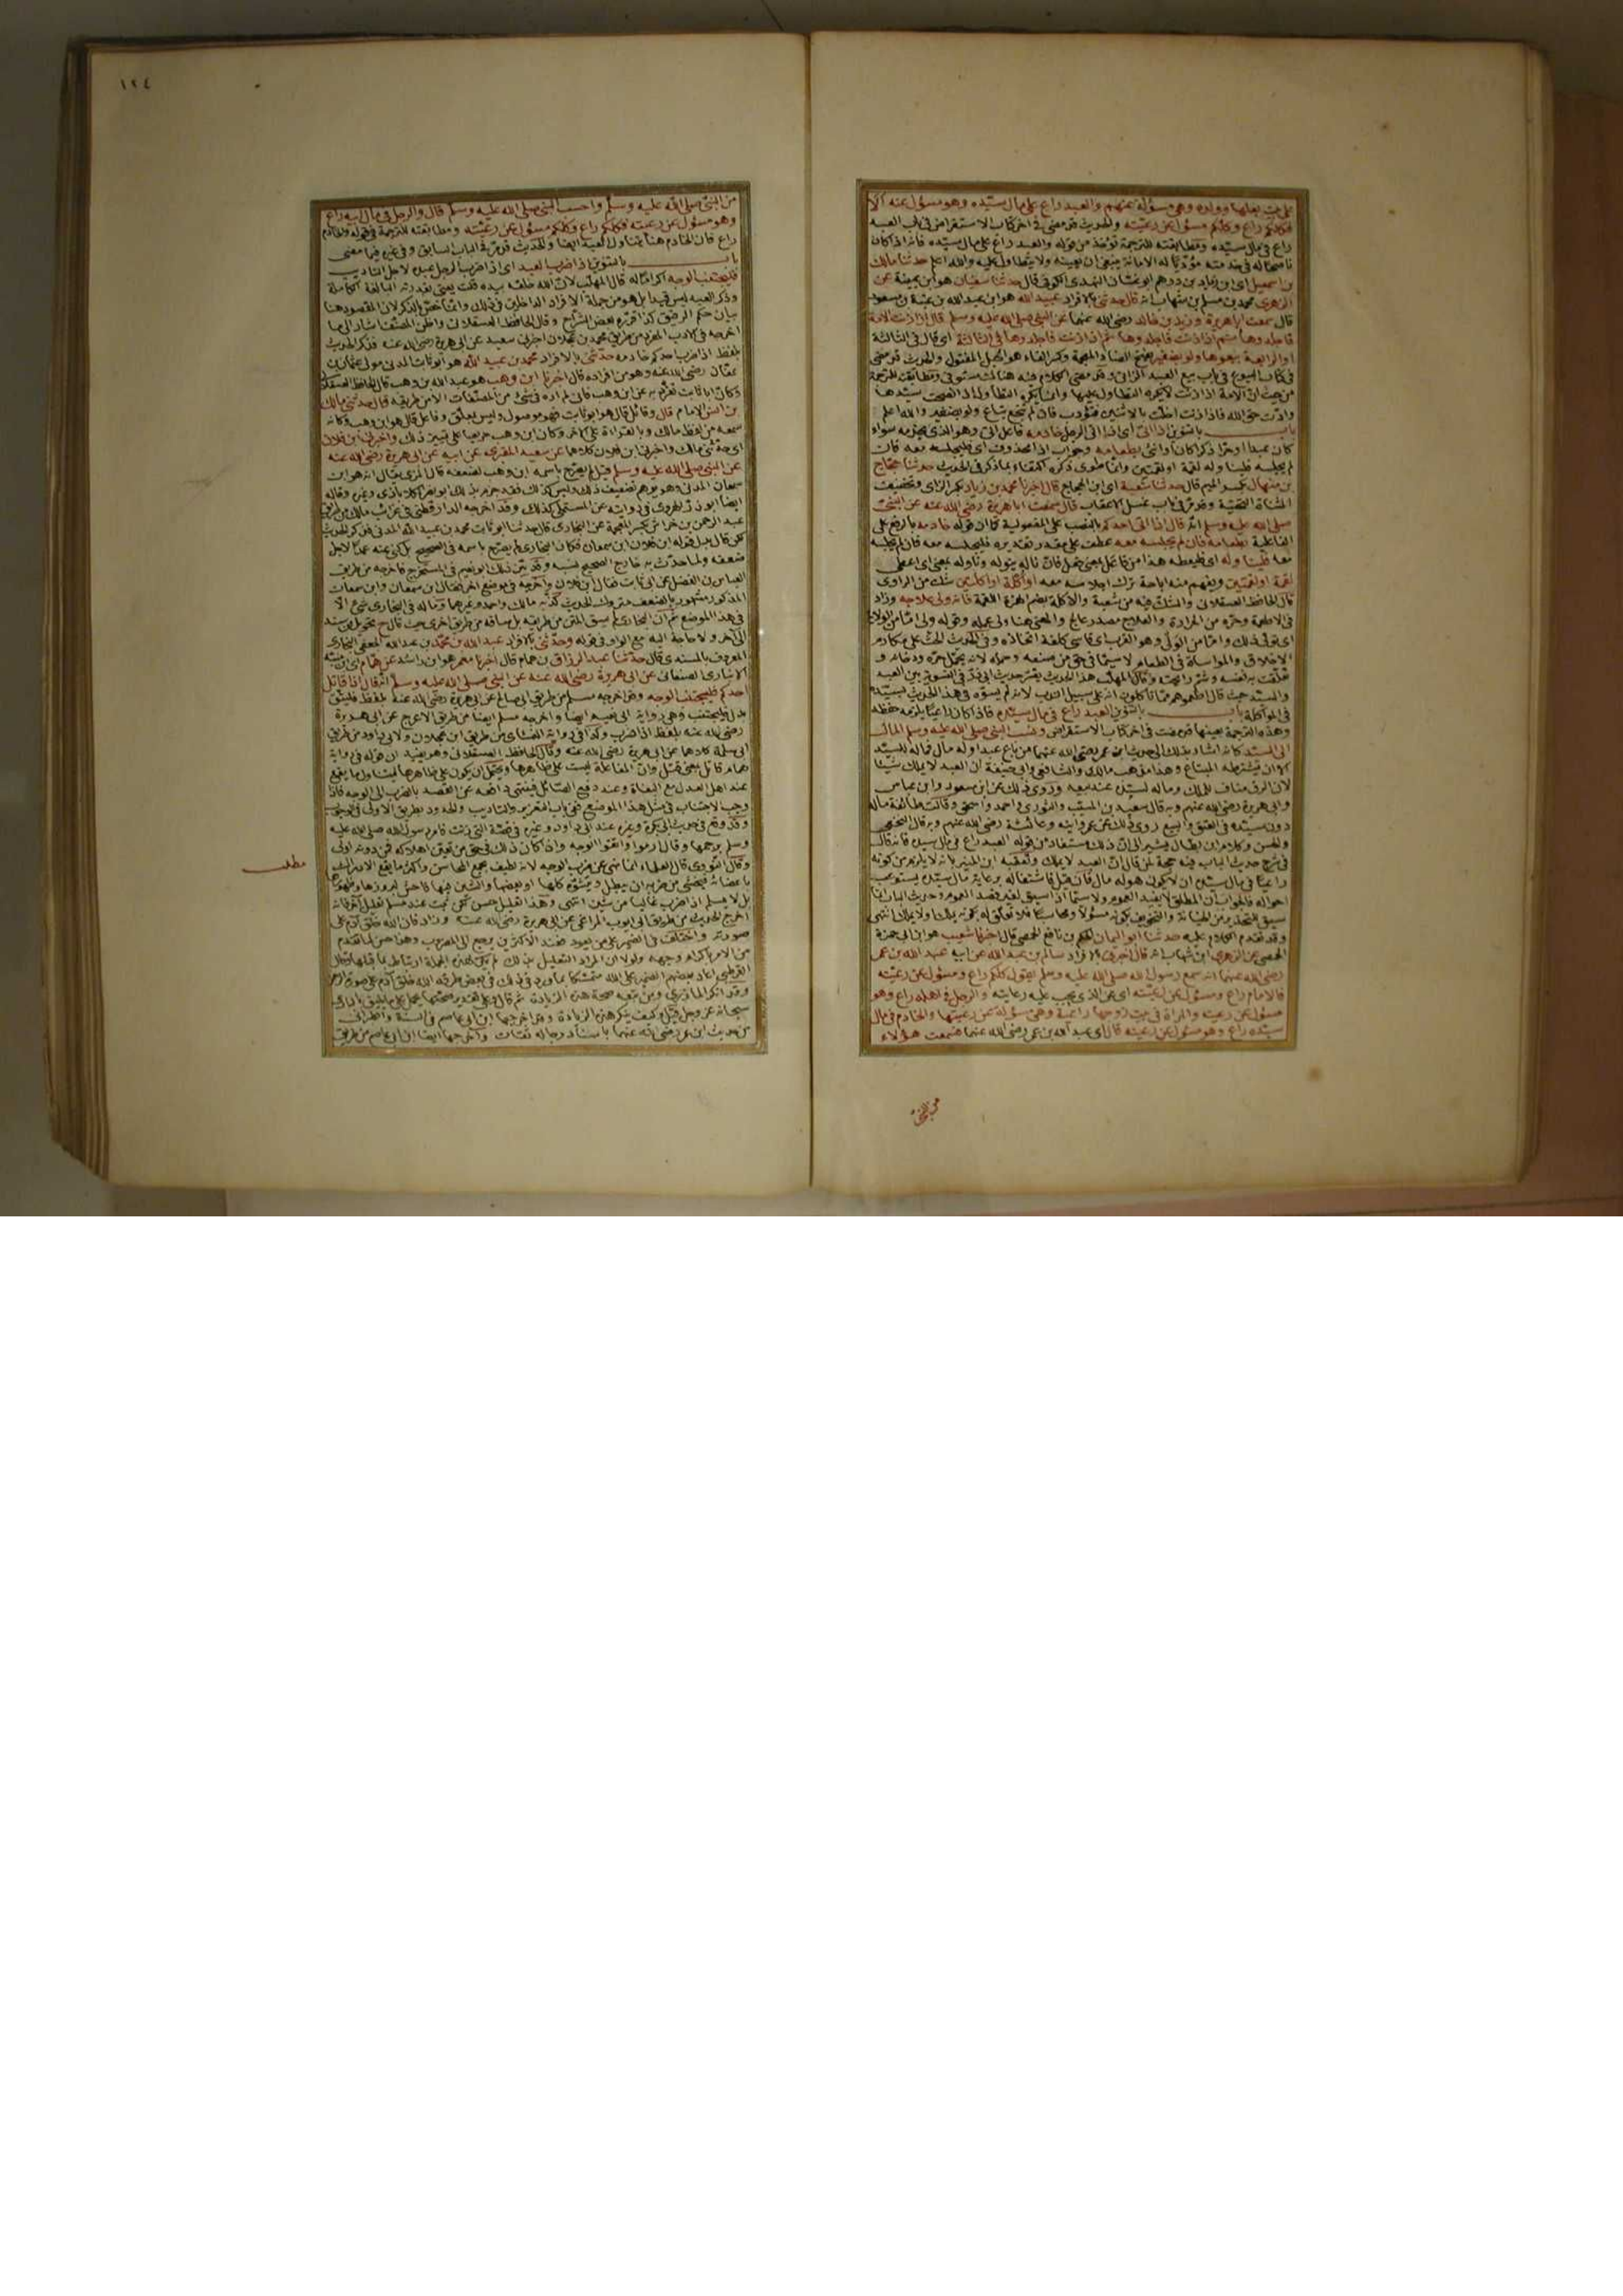 على بيت بعلها وولده وهي مسؤلة عنهم والعبد راع على مال سيّده وهو مسؤل عنه ألا
فكلكم راع وكلكم مسؤل عن رعيته والحديث قد مضى في اخر كتاب الاستقراض في باب العبد
راع في مال سيّده ومطابقته للترجمة تؤخذ من قوله والعبد راع على مال سيّده فانه اذا كان
ناصحا له في خدمته مؤدّيا له الامانة ينبغي ان يعينه ولا يتطاول عليه والله اعلم حدثنا مالك
بن اسمعيل اي ابن زياد بن درهم ابو غسان النهدي الكوفي قال حدثنا سفيان هو ابن عيينة عن
الزهري محمد بن مسلم بن شهاب انه قال حدثني بالافراد عبيد الله هو ابن عبد الله بن عتبة بن مسعود
قال سمعت ابا هريرة وزيد بن خالد رضي الله عنهما عن النبي صلى الله عليه وسلم قال اذا زنت الامة
فاجلدوها ثم اذا زنت فاجلدوها ثم اذا زنت فاجلدوها في الثالثة اي قال في الثالثة
او الرابعة بيعوها ولو بضفير بفتح الضاد المعجمة وكسر الفاء هو الحبل المفتول والحديث قد مضى
في كتاب البيوع في باب بيع العبد الزاني وقد مضى الكلام فيه هنالك مستوفى ومطابقته للترجمة
من حيث ان الامة اذا زنت لا يكره التطاول عليها وانما يكره التطاول اذا نصحت سيّدها
وادّت حق الله فاذا زنت اخلّت بالاثنين فتؤدب فان لم تنجع تباع ولو بضفير والله اعلم
باب بالتنوين اذا اتى اي اذا اتى الرجل خادمه فاعل اتى وهو الذي يخدمه سواء
كان عبدا او حرّا ذكرا كان او انثى بطعامه وجواب اذا محذوف اي فليجلسه معه فان
لم يجلسه فليناوله لقمة او لقمتين وانما طوى ذكره اكتفاء بما ذكر في الحديث حدثنا حجّاج
بن منهال بكسر الميم قال حدثنا شعبة اي ابن الحجاج قال اخبرنا محمد بن زياد بكسر الزاي وتخفيف
المثناة التحتية وقد مر في باب غسل الاعقاب قال سمعت ابا هريرة رضي الله عنه عن النبي
صلى الله عليه وسلم انه قال اذا اتى احدكم بالنصب على المفعولية كان قوله خادمه بالرفع على
الفاعلية بطعامه فان لم يجلسه معه عطف على مقدر تقديره فليجلسه معه فان لم يجلسه
معه فليناوله
لقمة او لقمتين ويفهم منه اباحة ترك اجلاسه معه او اكلة او اكلتين شك من الراوي
قال الحافظ العسقلاني والشك فيه من شعبة والاكلة بضم الهمزة اللقمة فانه ولي علاجه وزاد
في الاطعمة وحرّه
الاخلاق والمواساة في الطعام لا سيما في حق من صنعه وحمله لانه تحمّل حرّه ودخانه و
تعلّقت به نفسه وشم رائحته وقال المهلب هذا الحديث يفسّر حديث ابي ذرّ في التسوية بين العبد
والسيّد حيث قال اطعموهم مما تأكلون انه على سبيل الندب لانه لم يسوّه في هذا الحديث بسيّده
في المؤاكلة باب بالتنوين العبد راع في مال سيّده فاذا كان راعيا يلزمه حفظه
وهذه الترجمة بعينها قد مضت في اخر كتاب الاستقراض ونسب النبي صلى الله عليه وسلم المال
الى السيّد كانه اشار بذلك الى حديث ابن عمر رضي الله عنهما من باع عبدا وله مال فماله للسيّد
الا ان يشترطه المبتاع وهذا مذهب مالك والشافعي وابي حنيفة ان العبد لا يملك شيئا
لان الرق مناف للملك وماله لسيّده عند بيعه وروي ذلك عن ابن مسعود وابن عباس
وابي هريرة رضي الله عنهم وبه قال سعيد بن المسيّب والثوري واحمد واسحق وقالت طائفة ماله
دون سيّده في العتق والبيع روي ذلك عن عمر وابنه وعائشة رضي الله عنهم وبه قال النخعي
والحسن وكلام ابن بطال يشير الى ان ذلك مستفاد من قوله العبد راع في مال سيده فانه قال
في شرح حديث الباب فيه حجة لمن قال انّ العبد لا يملك وتعقبه ابن المنير بانه لا يلزم من كونه
راعيا في مال سيّده ان لا يكون هو له مال فان قيل فاشتغاله برعاية مال سيّده يستوعب
احواله فالجواب ان المطلق لا يفيد العموم ولا سيّما اذا سيق لغير قصد العموم وحديث الباب انما
سيق للتحذير من الخيانة والتخويف بكونه مسؤلا ومحاسبا فلا تعلّق له بكونه يملك ولا يملك انتهى
وقد تقدم الكلام عليه حدثنا ابو اليمان الحكم بن نافع الحمصي قال اخبرنا شعيب هو ابن ابي حمزة
الحمصي عن الزهري ابن شهاب انه قال اخبرني بالافراد سالم بن عبد الله عن ابيه عبد الله بن عمر
رضي الله عنهما انه سمع رسول الله صلى الله عليه وسلم يقول كلكم راع ومسؤل عن رعيته
فالامام راع ومسؤل عن رعيته اي عن الذي يجب عليه رعايته والرجل في اهله راع وهو
مسؤل عن رعيته والمراة في بيت زوجها راعية وهي مسؤلة عن رعيتها والخادم في مال
سيّده راع وهو مسؤل عن رعيته قال اي عبد الله بن عمر رضي الله عنهما فسمعت هؤلاء
من النبي
١٢٤
من النبي صلى الله عليه وسلم واحسب النبي صلى الله عليه وسلم قال والرجل في مال ابيه راع
وهو مسؤل عن رعيته فكلكم راع وكلكم مسؤل عن رعيّته ومطابقته للترجمة في قوله والخادم
راع فان الخادم هنا يتناول العبد ايضا والحديث قد مر في الباب السابق وفي غيره فيما مضى
باب بالتنوين اذا ضرب العبد اي اذا ضرب الرجل عبده لاجل التاديب
فليجتنب الوجه اكراما له قال المهلب لان الله خلقه بيده قلت يعني بقدرته البالغة الكاملة
وذكر العبد ليس قيدا بل هو من جملة الافراد الداخلين في ذلك وانما خص بالذكر لان المقصود هنا
بيان حكم الرقيق كذا قرّره بعض الشرّاح وقال الحافظ العسقلاني واظن المصنف اشار الى ما
اخرجه في الادب المفرد من طريق محمد بن عجلان اخبرني سعيد عن ابي هريرة رضي الله عنه فذكر الحديث
بلفظ اذا ضرب احدكم خادمه حدثني بالافراد محمد بن عبيد الله هو ابو ثابت المدني مولى عثمان بن
عفان رضي الله عنه وهو من افراده قال اخبرنا ابن وهب هو عبد الله بن وهب قال الحافظ العسقلاني
وكان ابا ثابت تفرّد به عن ابن وهب فاني لم اره في شئ من المصنفات الا من طريقه قال حدثني مالك
بن انس الامام قال وقائل قال هو ابو ثابت فهو موصول وليس بمعلّق وفاعل قال هو ابن وهب وكانه
سمعه من لفظ مالك وبالقراءة على الاخر وكان ابن وهب حريصا على تمييز ذلك واخبرني ابن فلان
اي حدّثني مالك واخبرني ابن فلان كلاهما عن سعيد المقبري عن ابيه عن ابي هريرة رضي الله عنه
عن النبي صلى الله عليه وسلم قيل لم يصرّح باسمه ابن وهب لضعفه قال المزي يقال انه هو ابن
سمعان المدني وهو يوهم تضعيف ذلك وليس كذلك فقد جزم بذلك ابو نصر الكلاباذي وغيره وقاله
ايضا ابو ذرّ الهروي في روايته عن المستملي كذلك وقد اخرجه الدارقطني في غرائب مالك من طريق
عبد الرحمن بن خراش بكسر المعجمة عن البخاري قال حدثنا ابو ثابت محمد بن عبيد الله المدني فذكر الحديث
لكن قال بدل قوله ابن فلان ابن سمعان فكان البخاري لم يصرح باسمه في الصحيح بل كنى عنه عمدا لاجل
ضعفه ولما حدّث به خارج الصحيح نسبه وقد بيّن ذلك ابو نعيم في المستخرج فاخرجه من طريق
العباس بن الفضل عن ابي ثابت فقال ابن فلان واخرجه في موضع اخر فقال ابن سمعان وابن سمعان
المذكور مشهور بالضعف متروك الحديث كذّبه مالك واحمد وغيرهما وماله في البخاري شئ الّا
في هذا الموضع ثم ان البخاري لم يسق المتن من طريقه بل ساقه من طريق اخرى حيث قال ح تحويل من سند
الى اخر ولا حاجة اليه مع الواو في قوله وحدّثني بالافراد عبد الله بن محمّد بن عبد الله الجعفي البخاري
المعروف بالمسندي قال حدّثنا عبد الرزاق بن همام قال اخبرنا معمر هو ابن راشد عن همّام اي ابن منبّه
الانباري الصنعاني عن ابي هريرة رضي الله عنه عن النبي صلى الله عليه وسلم انه قال اذا قاتل
احدكم فليجتنب الوجه وقد اخرجه مسلم من طريق ابي صالح عن ابي هريرة رضي الله عنه بلفظ فليتّق
بدل فليجتنب وهي رواية ابي نعيم ايضا واخرجه مسلم ايضا من طريق الاعرج عن ابي هريرة
رضي الله عنه بلفظ اذا ضرب وكذا في رواية النسائي من طريق ابن عجلان ولابي داود من طريق
ابي سلمة كلاهما عن ابي هريرة رضي الله عنه وقال الحافظ العسقلاني وهو يفيد ان قوله في رواية
همام قاتل بمعنى قتل وان المفاعلة ليست على ظاهرها ويحتمل ان يكون على ظاهرها ليتناول ما يقع
عند اهل العدل مع البغاة وعند دفع الصائل فينهى دافعه عن القصد بالضرب الى الوجه فاذا
وجب الاجتناب في مثل هذا الموضع ففي باب التعزير والتاديب والحدود بطريق الاولى في الوجوب
وقد وقع في حديث ابي بكرة وغيره عند ابي داود وغيره في قصّة التي زنت فامر رسول الله صلى الله عليه
وسلم برجمها وقال ارموا واتقوا الوجه واذا كان ذلك في حق من تعيّن اهلاكه فمن دونه اولى
وقال النووي قال العلماء انما نهى عن ضرب الوجه لانه لطيف يجمع المحاسن واكثر ما يقع الادراك
باعضائه فيخشى من ضربه ان يبطل او يتشوّه كلها او بعضها والشين فيها فاحش لبروزها وظهورها
بل لا يسلم اذا ضرب غالبا من شين انتهى وهذا تعليل حسن لكن ثبت عند مسلم تعليل اخر فانه
اخرج الحديث من طريق ابي ايوب المراغي عن ابي هريرة رضي الله عنه وزاد فان الله خلق آدم على
صورته واختلف في الضمير على من يعود فعند الاكثرين يرجع الى المضروب وهذا حسن لما تقدم
من الامر باكرام وجهه ولولا ان المراد التعليل بذلك لم يكن لهذه الجملة ارتباط بما قبلها وقال
القرطبي اعاد بعضهم الضمير على الله متمسّكا بما ورد في ذلك في بعض طرقه ان الله خلق آدم على صورة الرحمن
وقد انكر المازري ومن تبعه صحة هذه الزيادة ثم قال وعلى تقدير صحتها يحمل على ما يليق بالباري
سبحانه عز وجل قيل وكيف ينكر هذه الزيادة وقد اخرجها ابن ابي عاصم في السنة والطبراني
من حديث ابن عمر رضي الله عنهما باسناد رجاله ثقات واخرجها ايضا ابن ابي عاصم من طريق
مطلب